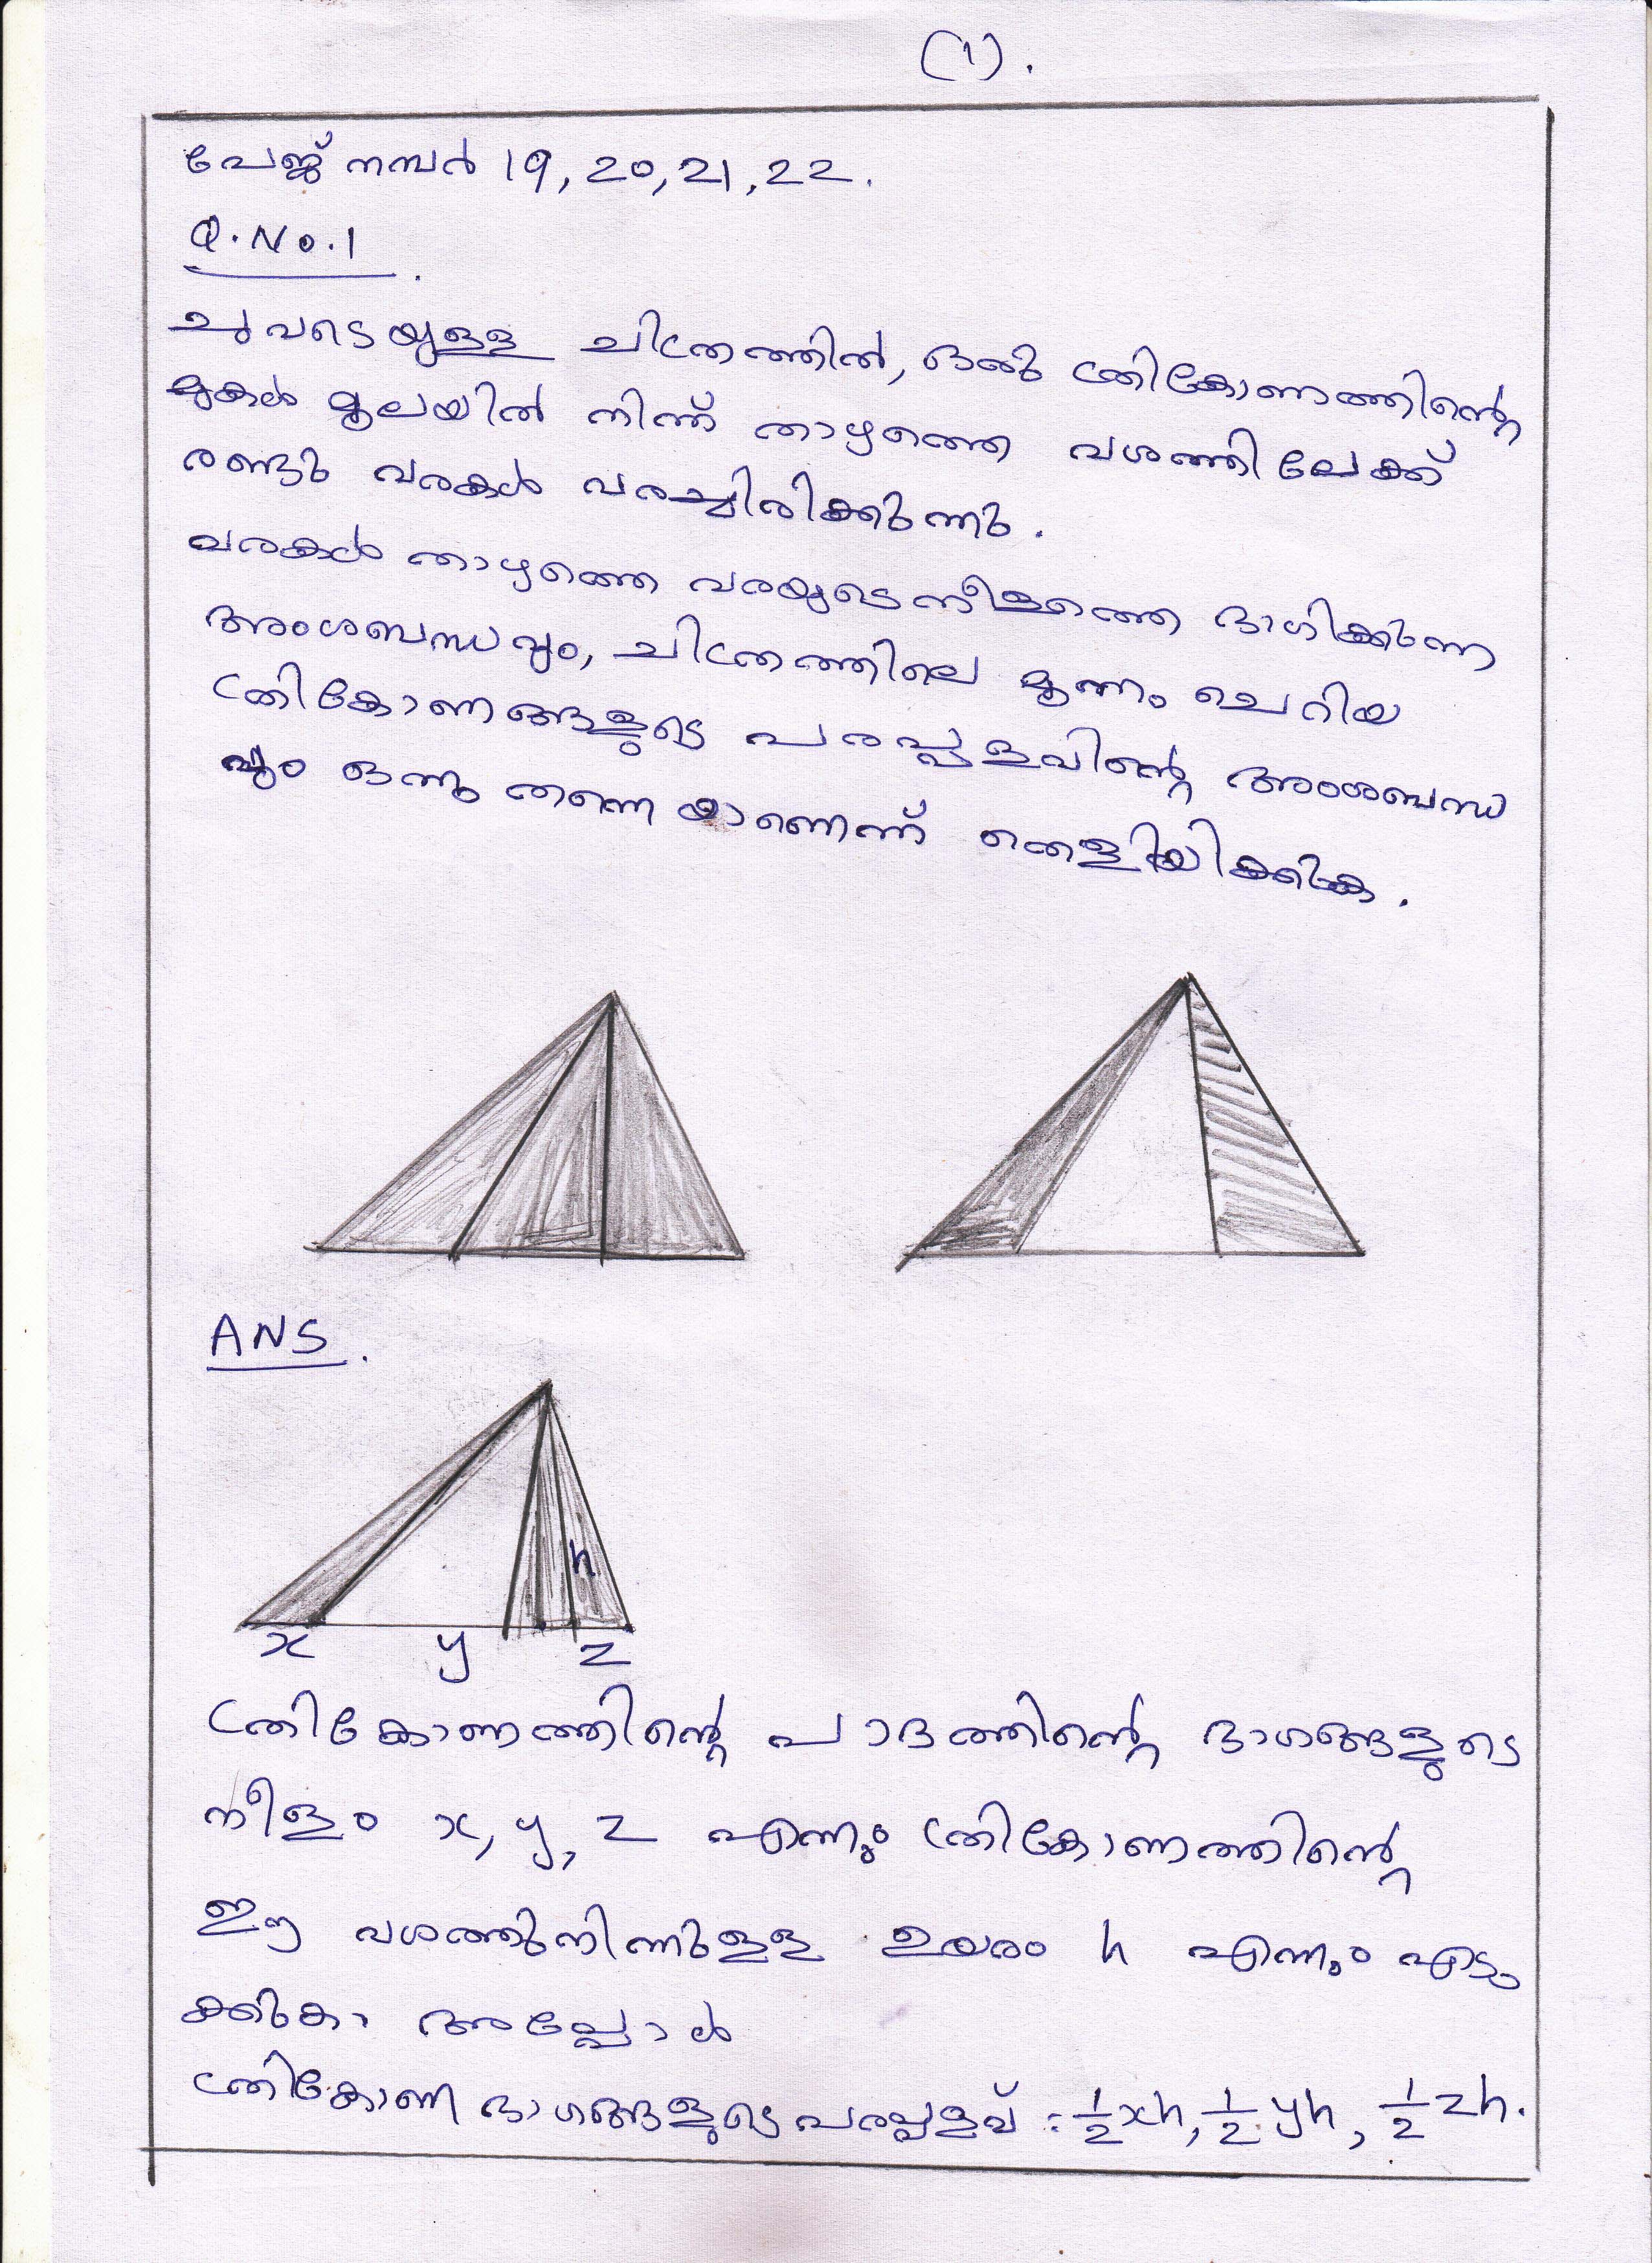 (1).
പേജ് നമ്പർ 19, 20, 21, 22.
Q. No. 1
ചുവടെയുള്ള ചിത്രത്തിൽ, ഒരു ത്രികോണത്തിന്റെ
മുകൾ മൂലയിൽ നിന്ന് താഴത്തെ വശത്തിലേക്ക്
രണ്ടു വരകൾ വരച്ചിരിക്കുന്നു.
വരകൾ താഴത്തെ വരയുടെ നീളത്തെ ഭാഗിക്കുന്ന
അംശബന്ധവും, ചിത്രത്തിലെ മൂന്നും ചെറിയ
ത്രികോണങ്ങളുടെ പരപ്പളവിന്റെ അംശബന്ധ
വും ഒന്നു തന്നെ യാണെന്ന് തെളിയിക്കുക.
ANS.
h
x y z
ത്രികോണത്തിന്റെ പാദത്തിന്റെ ഭാഗങ്ങളുടെ
നീളം x, y, z എന്നും ത്രികോണത്തിന്റെ
ഈ വശത്തുനിന്നുള്ള ഉയരം h എന്നും എടു
ക്കുക അപ്പോൾ
ത്രികോണ ഭാഗങ്ങളുടെ പരപ്പളവ് : ½xh, ½yh, ½zh.